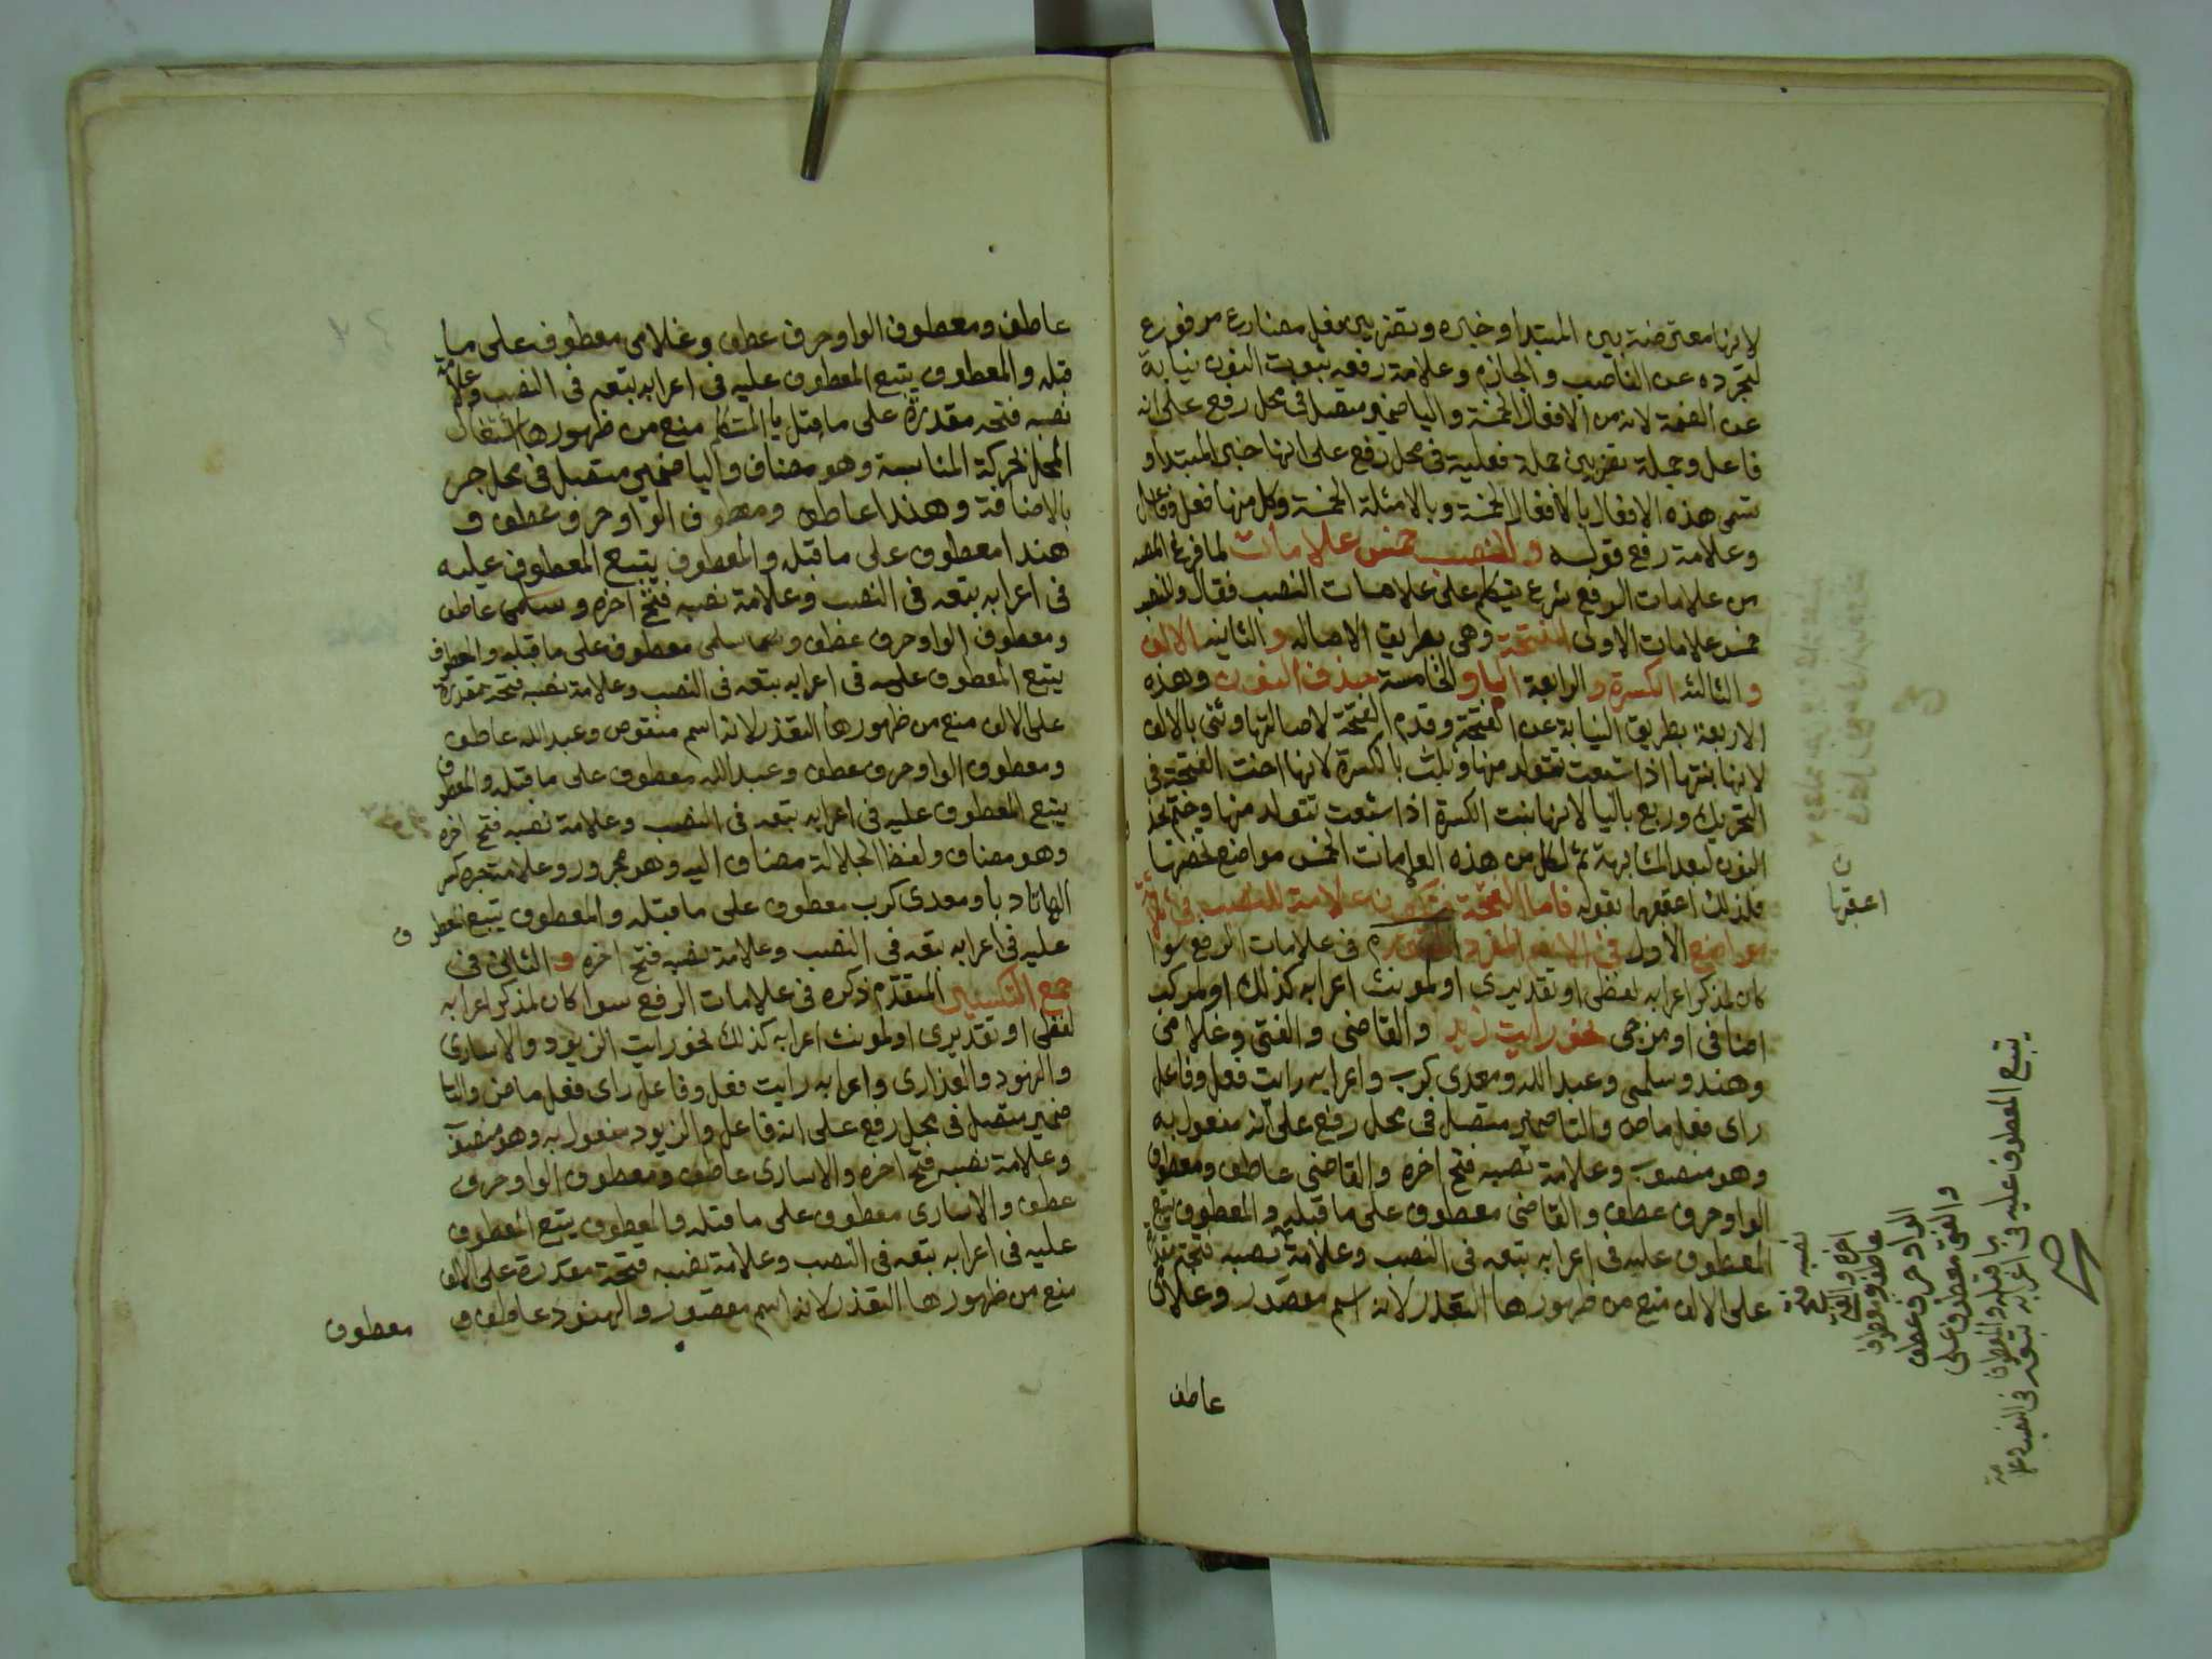 لانها معترضة بين المبتدا وخبره وتضربين فعل مضارع مرفوع
لتجرده عن الناصب والجازم وعلامة رفعه ثبوت النون نيابة
عن الضمة لانه من الافعال الخمسة واليا ضمير متصل في محل رفع على انه
فاعل وجملة تضربين جملة فعلية في محل رفع على انها خبر المبتدا و
تسمى هذه الافعال بالافعال الخمسة وبالامثلة الخمسة وكل منها فعل وفاعل
وعلامة رفع قوله وللنصب خمس علامات لما فرغ المصـ
من علامات الرفع شرع يتكلم على علامات النصب فقال وللنصب
خمس علامات الاولى الفتحة وهي بطريق الاصاله والثانيه الالف
والثالثه الكسرة والرابعة اليا والخامسة حذف النون وهذه
الاربعة بطريق النيابة عن الفتحة وقدم الفتحة لاصالتها وثنى بالالف
لانها بنتها اذا اشبعت تتولد منها وثلث بالكسرة لانها اخت الفتحة في
التحريك وربع باليا لانها بنت الكسرة اذا اشبعت تتولد منها وختم بحذ
النون لبعد المشابهة ثم لكل من هذه العلامات الخمس مواضع تخصها
فلذلك اعقبها بقوله فاما الفتحة فتكون علامة للنصب في ثلاثة
مواضع الاول في الاسم المفرد المتقدم في علامات الرفع سوا
كان لمذكر اعرابه لفظى او تقديرى او لمونث اعرابه كذلك او لمركب
اضافى او مزجى نحو رايت زيد والقاضى والفتى وغلامى
وهند وسلمى وعبد الله ومعدى كرب واعرابه رايت فعل وفاعل
راى فعل ماض والتا ضمير متصل في محل رفع على انه مفعول به
وهو منصوب وعلامة نصبه فتح اخره والقاضى عاطف ومعطوف
الواو حرف عطف والقاضى معطوف على ما قبله والمعطوف يتبع
المعطوف عليه في اعرابه تبعه في النصب وعلامة نصبه فتحة مقدرة
على الالف منع من ظهورها التعذر لانه اسم مقصور وغلامى
عاطف
اعقبها
نصبه فتح
اخره والفتى
عاطف ومعطوف
الواو حرف عطف
والفتى معطوف على
ما قبله والمعطوف
يتبع المعطوف عليه في اعرابه تبعه في النصب وعلامة
عاطف ومعطوف الواو حرف عطف وغلامى معطوف على ما
قبله والمعطوف يتبع المعطوف عليه في اعرابه تبعه في النصب وعلامة
نصبه فتحه مقدرة على ما قبل يا المتكلم منع من ظهورها اشتغال
المحل بحركة المناسبة وهو مضاف واليا ضمير متصل في محل جر
بالاضافة وهندا عاطف ومعطوف الواو حرف عطف و
هندا معطوف على ما قبله والمعطوف يتبع المعطوف عليه
في اعرابه تبعه في النصب وعلامة نصبه فتح اخره وسلمى عاطف
ومعطوف الواو حرف عطف وسلمى معطوف على ما قبله والمعطوف
يتبع المعطوف عليه في اعرابه تبعه في النصب وعلامة نصبه فتحة مقدرة
على الالف منع من ظهورها التعذر لانه اسم منقوص وعبد الله عاطف
ومعطوف الواو حرف عطف وعبد الله معطوف على ما قبله والمعطوف
يتبع المعطوف عليه في اعرابه تبعه في النصب وعلامة نصبه فتح اخره
وهو مضاف ولفظ الجلالة مضاف اليه وهو مجرور وعلامة جره كسر
الها تادبا ومعدى كرب معطوف على ما قبله والمعطوف يتبع المعطوف
عليه في اعرابه تبعه في النصب وعلامة نصبه فتح اخره والثانى في
جمع التكسير المتقدم ذكره في علامات الرفع سوا كان لمذكر اعرابه
لفظى او تقديرى او لمونث اعرابه كذلك نحو رايت الزيود والاسارى
والهنود والعذارى واعرابه رايت فعل وفاعل راى فعل ماض والتا
ضمير متصل في محل رفع على انه فاعل والزيود مفعول به وهو منصوب
وعلامة نصبه فتح اخره والاسارى عاطف ومعطوف الواو حرف
عطف والاسارى معطوف على ما قبله والمعطوف يتبع المعطوف
عليه في اعرابه تبعه في النصب وعلامة نصبه فتحة مقدرة على الالف
منع من ظهورها التعذر لانه اسم مقصور والهنود عاطف و
معطوف